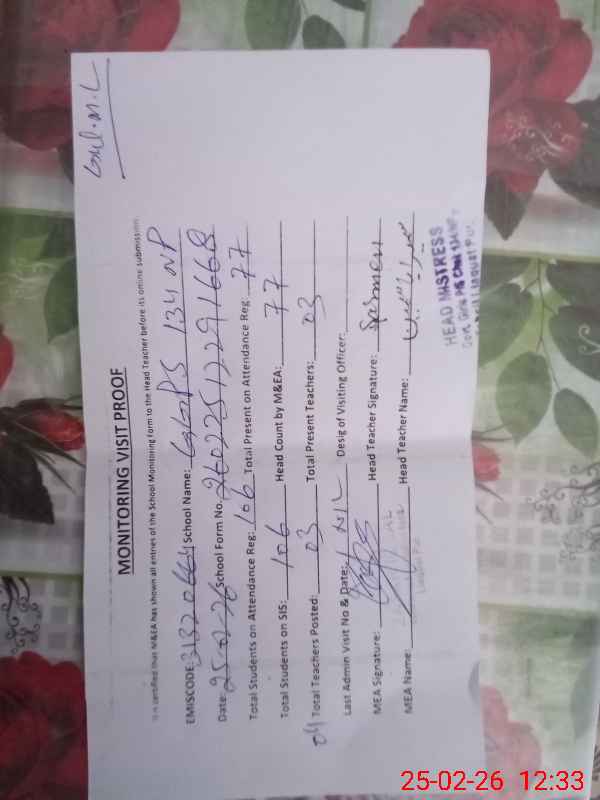 MONITORING VISIT PROOF
It is certified that M&EA has shown all entries of the School Monitoring Form to the Head Teacher before its online submission.
EMISCODE: 31320664 School Name: GGPS 134 NP
Date: 25-02-26 School Form No. 260225122291668
Total Students on Attendance Reg: 106 Total Present on Attendance Reg: 77
Total Students on SIS: 106 Head Count by M&EA: 77
04 Total Teachers Posted: 03 Total Present Teachers: 03
Last Admin Visit No & Date: NIL Desig of Visiting Officer:
MEA Signature: Head Teacher Signature:
MEA Name: Head Teacher Name:
HEAD MISTRESS
25-02-26 12:33